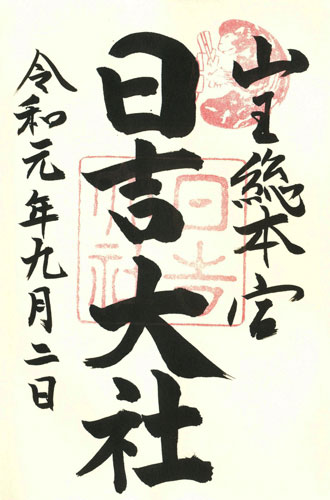 山王総本宮
日吉大社
令和元年九月二日
日吉
大社